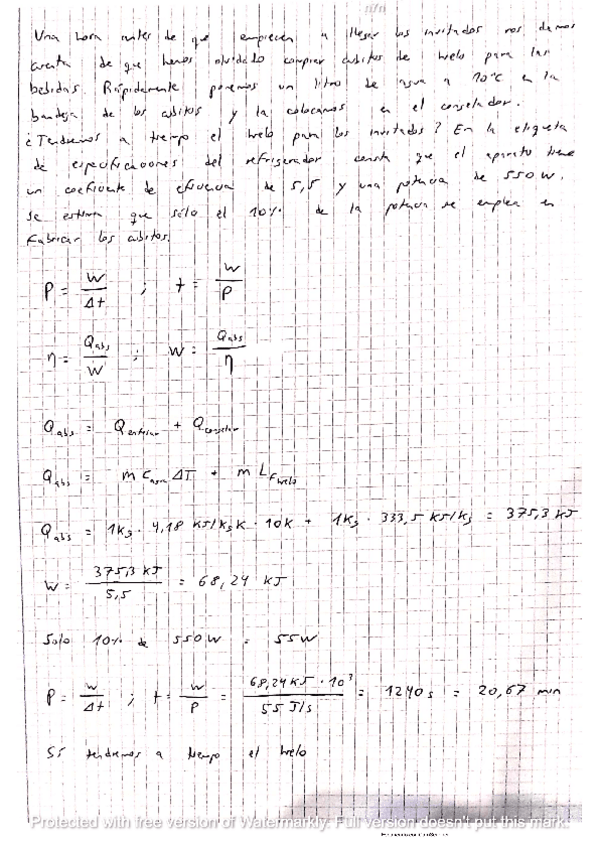 Una hora antes de que empiecen a llegar los invitados nos damos
cuenta de que hemos olvidado comprar cubitos de hielo para las
bebidas. Rápidamente ponemos un litro de agua a 10°C en la
bandeja de los cubitos y la colocamos en el congelador.
¿Tendremos a tiempo el hielo para los invitados? En la etiqueta
de especificaciones del refrigerador consta que el aparato tiene
un coeficiente de eficiencia de 5,5 y una potencia de 550 W.
Se estima que sólo el 10% de la potencia se emplea en
fabricar los cubitos.
P = W/Δt ; t = W/P
η = Qabs/W ; W = Qabs/η
Qabs = Qenfriar + Qcongelar
Qabs = m Cagua ΔT + m LF hielo
Qabs = 1kg · 4,18 KJ/kgK · 10K + 1Kg · 333,5 KJ/kg = 375,3 KJ
W = 375,3 KJ/5,5 = 68,24 KJ
Solo 10% de 550W = 55W
P = W/Δt ; t = W/P = 68,24KJ · 10³/55 J/s = 1240 s = 20,67 min
Sí tendremos a tiempo el hielo
Protected with free version of Watermarkly. Full version doesn't put this mark.